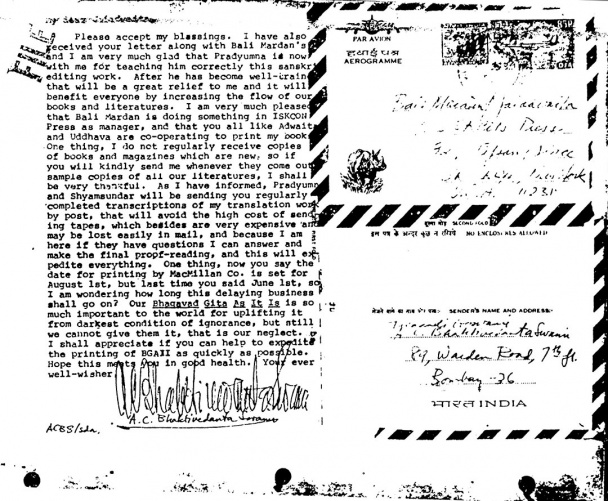 My dear
Please accept my blessings. I have also
received your letter along with Bali Mardan's
and I am very much glad that Pradyumna is now
with me for teaching him correctly this sanskri
editing work. After he has become well-train
that will be a great relief to me and it will
benefit everyone by increasing the flow of our
books and literatures. I am very much please
that Bali Mardan is doing something in ISKCON
Press as manager, and that you all like Adwait
and Uddhava are co-operating to print my book
One thing, I do not regularly receive copies
of books and magazines which are new, so if
you will kindly send me whenever they come out
sample copies of all our literatures, I shall
be very thankful. As I have informed, Pradyumn
and Shyamsundar will be sending you regularly
completed transcriptions of my translation work
by post, that will avoid the high cost of send
ing tapes, which besides are very expensive and
may be lost easily in mail, and because I am
here if they have questions I can answer and
make the final proof-reading, and this will ex
pedite everything. One thing, now you say the
date for printing by MacMillan Co. is set for
August 1st, but last time you said June 1st, so
I am wondering how long this delaying business
shall go on? Our Bhagavad Gita As It Is is so
much important to the world for uplifting it
from darkest condition of ignorance, but still
we cannot give them it, that is our neglect.
I shall appreciate if you can help to expedite
the printing of BGAII as quickly as possible.
Hope this meets you in good health. Your ever
well-wisher
A.C. Bhaktivedanta Swami
ACBS/sda.
PAR AVION
हवाई पत्र
AEROGRAMME
Press
SECOND FOLD
इस पत्र के अन्दर कुछ न रखिये NO ENCLOSURES ALLOWED
भेजने वाले का नाम और पता:- SENDER'S NAME AND ADDRESS:-
Bhaktivedanta Swami
89, Warden Road, 7th fl.
Bombay-26
भारत INDIA